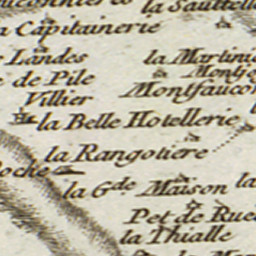 la Sauttell
a Capitainerie
Landes
la Martini
e de Pile
Montge
Villier
Montfaucon
la Belle Hotellerie
la Rangotiere
Roche
la G.de Maison
la
Pet de Rue
la Thialle